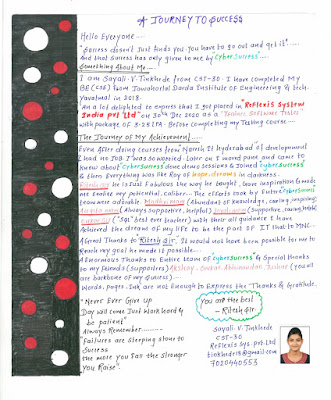 A JOURNEY TO SUCCESS
Hello Everyone....
"Success doesn't just finds you. you have to go out and get it"....
And that success has only given to me by Cyber Success....
Something About Me....
I am Sayali. V. Tinkhede from CST-30. I have completed My
BE(CSE) from Jawaharlal Darda Institute of Engineering & tech.
Yavatmal in 2018.
Am a lot delighted to express that I got placed in "Reflexis System
India pvt Ltd" on 30th Dec 2020 as a "Trainee Software Tester"
with package of 3.28 LPA. Before completing my Testing course...
The Journey of My Achievement....
Even After doing courses from Naresh It hyderabad of development
I had no JOB I was so worried. Later on I moved pune and came to
know about Cyber Success done demo sessions & Joined Cyber success
& then Everything was like Ray of hope, dreams in darkness.
he is Just Fabulous the way he taught, gave inspiration & made
me Realise my potential, calibre. The efforts took by Entire Cyber success
team were adorable. Madhuri mam (Abundant of Knowledge, caring, inspiring)
(Always supportive, helpful) (Supportive, caring, helpful)
("Sql" best ever teacher) with their all guidance I have
Achieved the dream of my life to be the part of IT that to MNC...
A Great Thanks to "Ritesh Sir". It would not have been possible for me to
Reach my goal he made it possible...
A Enormous Thanks to Entire team of Cyber success & Special thanks
to my friends (supporters) Akshay, Omkar, Abhinandan, (you all
are backbone of my success)....
Words, pages, Ink are not Enough to Express the Thanks & Gratitude.
"Never Ever Give Up
Day will come Just work hard &
be patient"
Always Remember.........
Failures are sleeping stone to
success
the more you Fail the stronger
You Raise".
You are the best
- Ritesh Sir
Sayali. V. Tinkhede
CST-30
Reflexis Sys. Pvt. Ltd
tinkhede18@gmail.com
7020440553